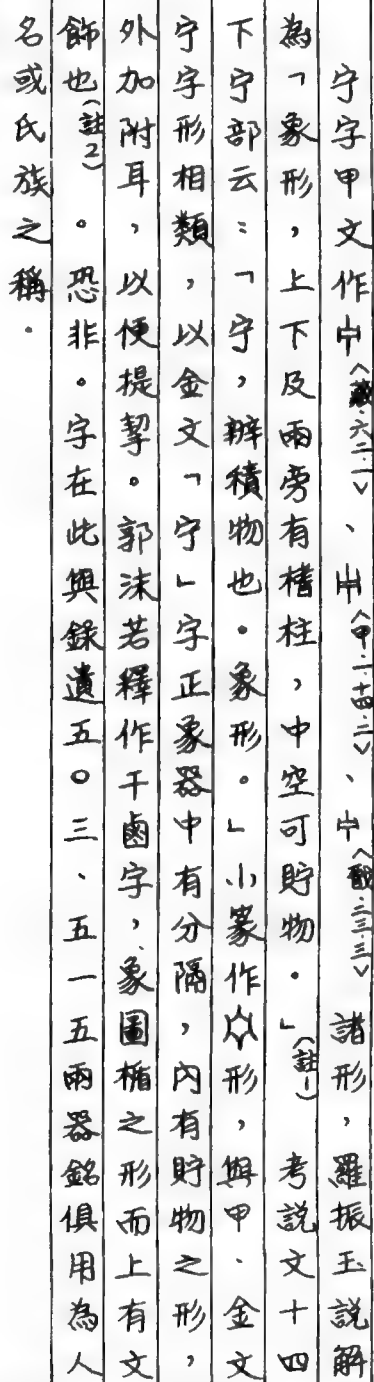 宁字甲文作〈藏·六二·一〉、〈甲·二·十四·二〉、〈戩·二三·三〉諸形，羅振玉說解
為「象形，上下及兩旁有楮柱，中空可貯物。」（註1）考說文十四
下宁部云：「宁，辧積物也。象形。」小篆作形，與甲、金文
宁字形相類，以金文「宁」字正象器中有分隔，內有貯物之形，
外加附耳，以便提挈。郭沫若釋作干鹵字，象圓楯之形而上有文
飾也（註2）。恐非。字在此與錄遺五〇三、五一五兩器銘俱用為人
名或氏族之稱。